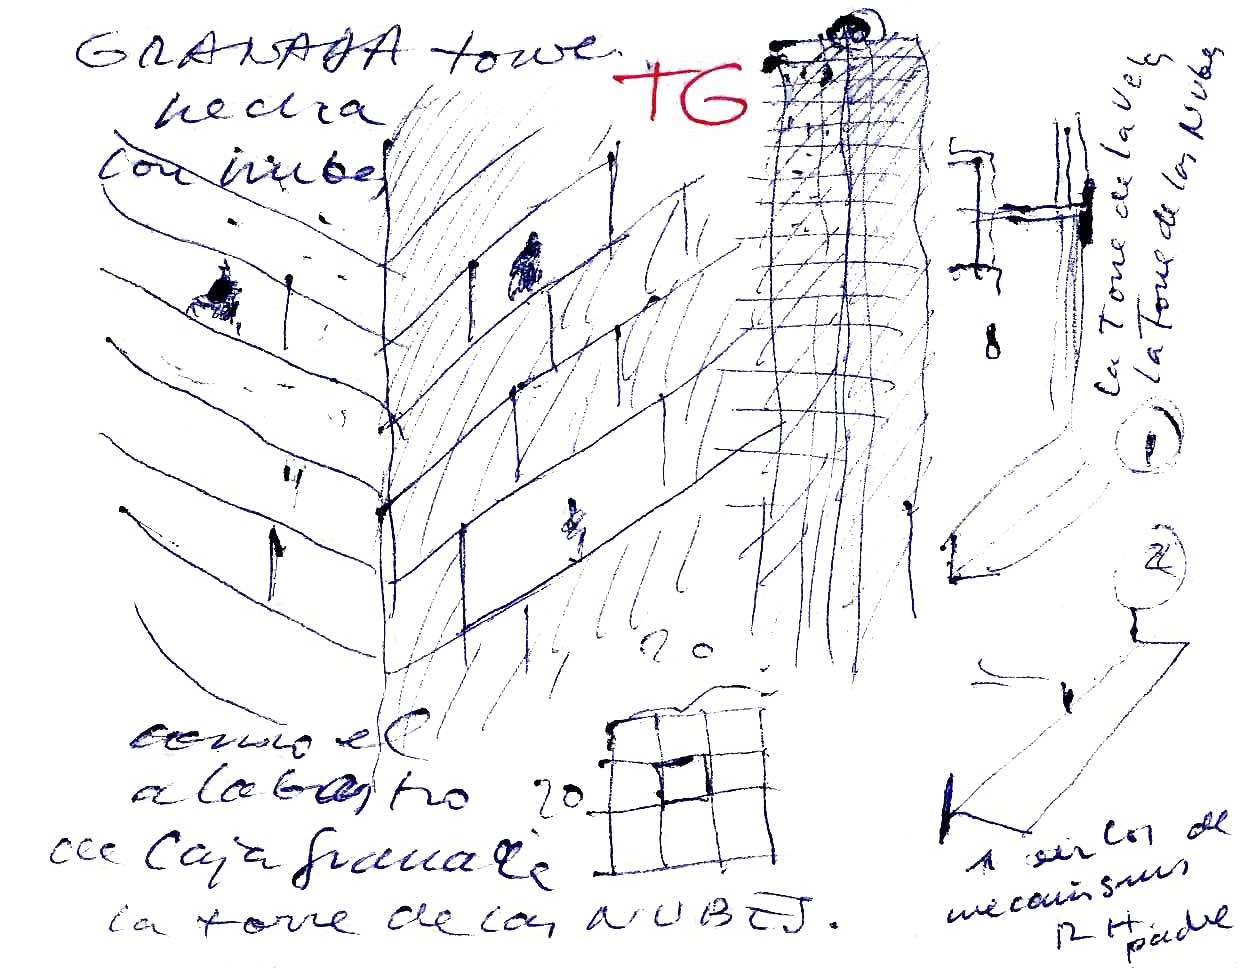 GRANADA tower
TG
piedra
con nubes
la Torre de la Vela
la Torre de las Nubes
1
2
20
como el
alabastro
20
de Caja Granada
la torre de las NUBES.
mecanismos
RH.
padre